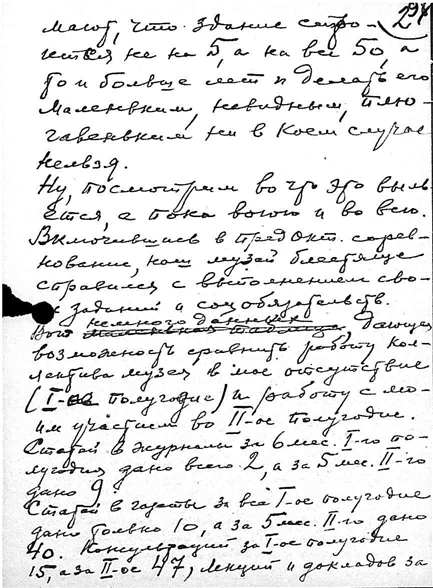 294
мают, что здание стро-
ится не на 5, а на все 50, а
то и больше лет и делать его
маленьким, невидным, плю-
гавеньким ни в коем случае
нельзя.
Ну, посмотрим во что это выль-
ется, а пока воюю и во всю.
Включившись в предокт. сорев-
нование, наш музей блестяще
справился с выполнением сво-
их заданий и соцобязательств.
Вот немного данных маленькая таблица, дающих
возможность сравнить работу кол-
лектива музея в мое отсутствие
(I-ое полугодие) и работу с мо-
им участием во II-ое полугодие.
Статей в журналы за 6 мес. I-го по-
лугодия дано всего 2, а за 5 мес. II-го
дано 9.
Статей в газеты за все I-ое полугодие
дано только 10, а за 5 мес. II-го дано
40. Консультаций за I-ое полугодие
15, а за II-ое 47, лекций и докладов за